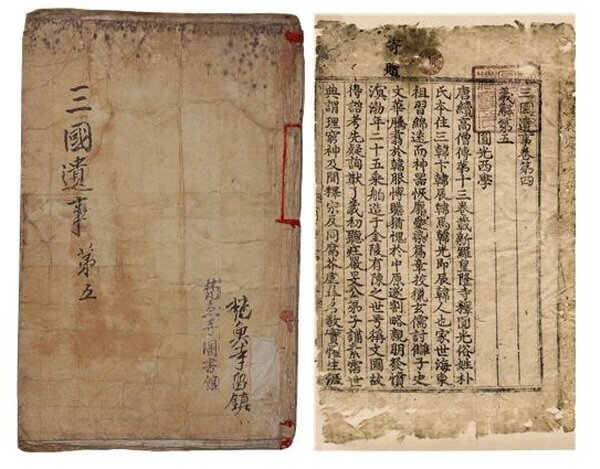 三國遺事 第五
梵魚寺圖書館
寄贈
三國遺事卷第四
義解第五
圓光西學
唐續高僧傳第十三卷載新羅皇隆寺釋圓光俗姓朴
氏本住三韓卞韓辰韓馬韓光即辰韓人也家世海東
祖習綿遠而神器恢廓愛染篇章校獵玄儒討讎子史
文華騰翥於韓服博贍猶愧於中原遂割略親朋發憤
溟渤年二十五乘舶造于金陵有陳之世号稱文國故
得諮考先疑詢猷了義初聽莊嚴旻公弟子講素霑世
典謂理窮神及聞釋宗反同腐芥虛尋名教實懼生涯